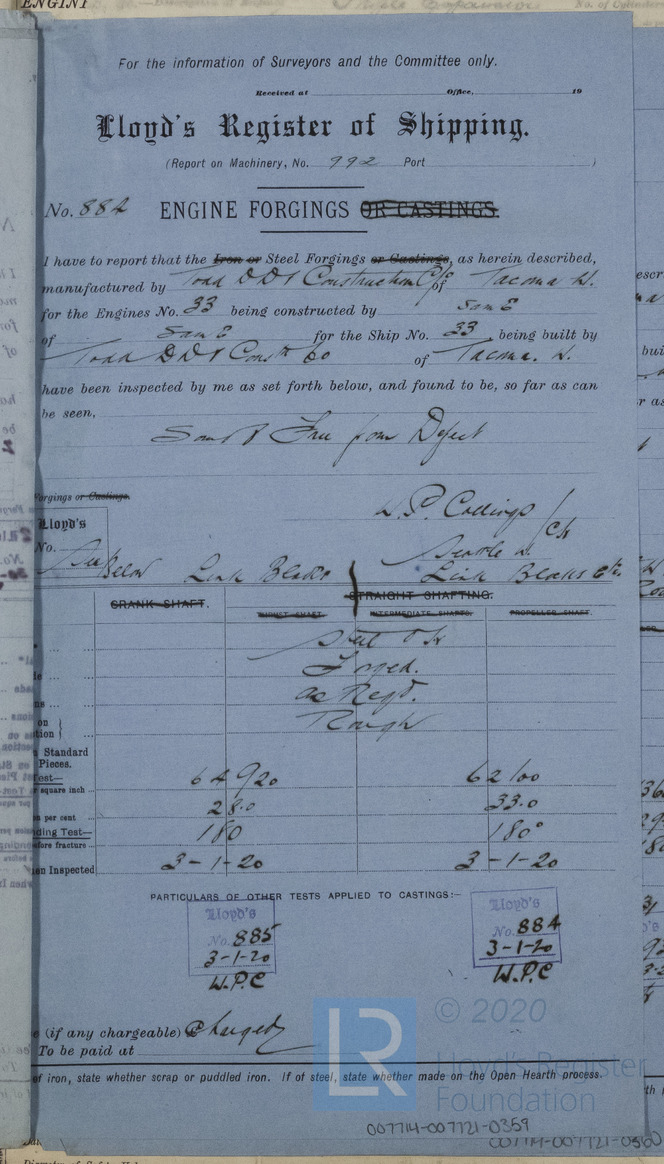 For the information of Surveyors and the Committee only.
Received at Office, 19
Lloyd's Register of Shipping.
(Report on Machinery, No. 992 Port )
No. 884 ENGINE FORGINGS OR CASTINGS.
I have to report that the Iron or Steel Forgings or Castings, as herein described,
manufactured by Todd D D & Construction Co of Tacoma W.
for the Engines No. 33 being constructed by Same
of Same for the Ship No. 33 being built by
Todd D D & Constn Co of Tacoma. W.
have been inspected by me as set forth below, and found to be, so far as can
be seen,
Sound & Free from Defect
Forgings or Castings.
W.P. Collings
Lloyd's
No.
Seattle W.
See Below Link Blocks Link Blocks
CRANK SHAFT. STRAIGHT SHAFTING.
THRUST SHAFT. INTERMEDIATE SHAFTS. PROPELLER SHAFT.
Steel O H
Forged.
as Reqd.
Rough
on
tion
Standard
Pieces.
est—
64920 62100
r square inch
28.0 33.0
n per cent
ding Test— 180 180°
efore fracture
en Inspected 3-1-20 3-1-20
PARTICULARS OF OTHER TESTS APPLIED TO CASTINGS:—
Lloyd's Lloyd's
No. 885 No. 884
3-1-20 3-1-20
W.P.C W.P.C
(if any chargeable) Charged
To be paid at
of iron, state whether scrap or puddled iron. If of steel, state whether made on the Open Hearth process.
© 2020
LR
Lloyd's Register
Foundation
007714-007721-0359
007714-007721-0360